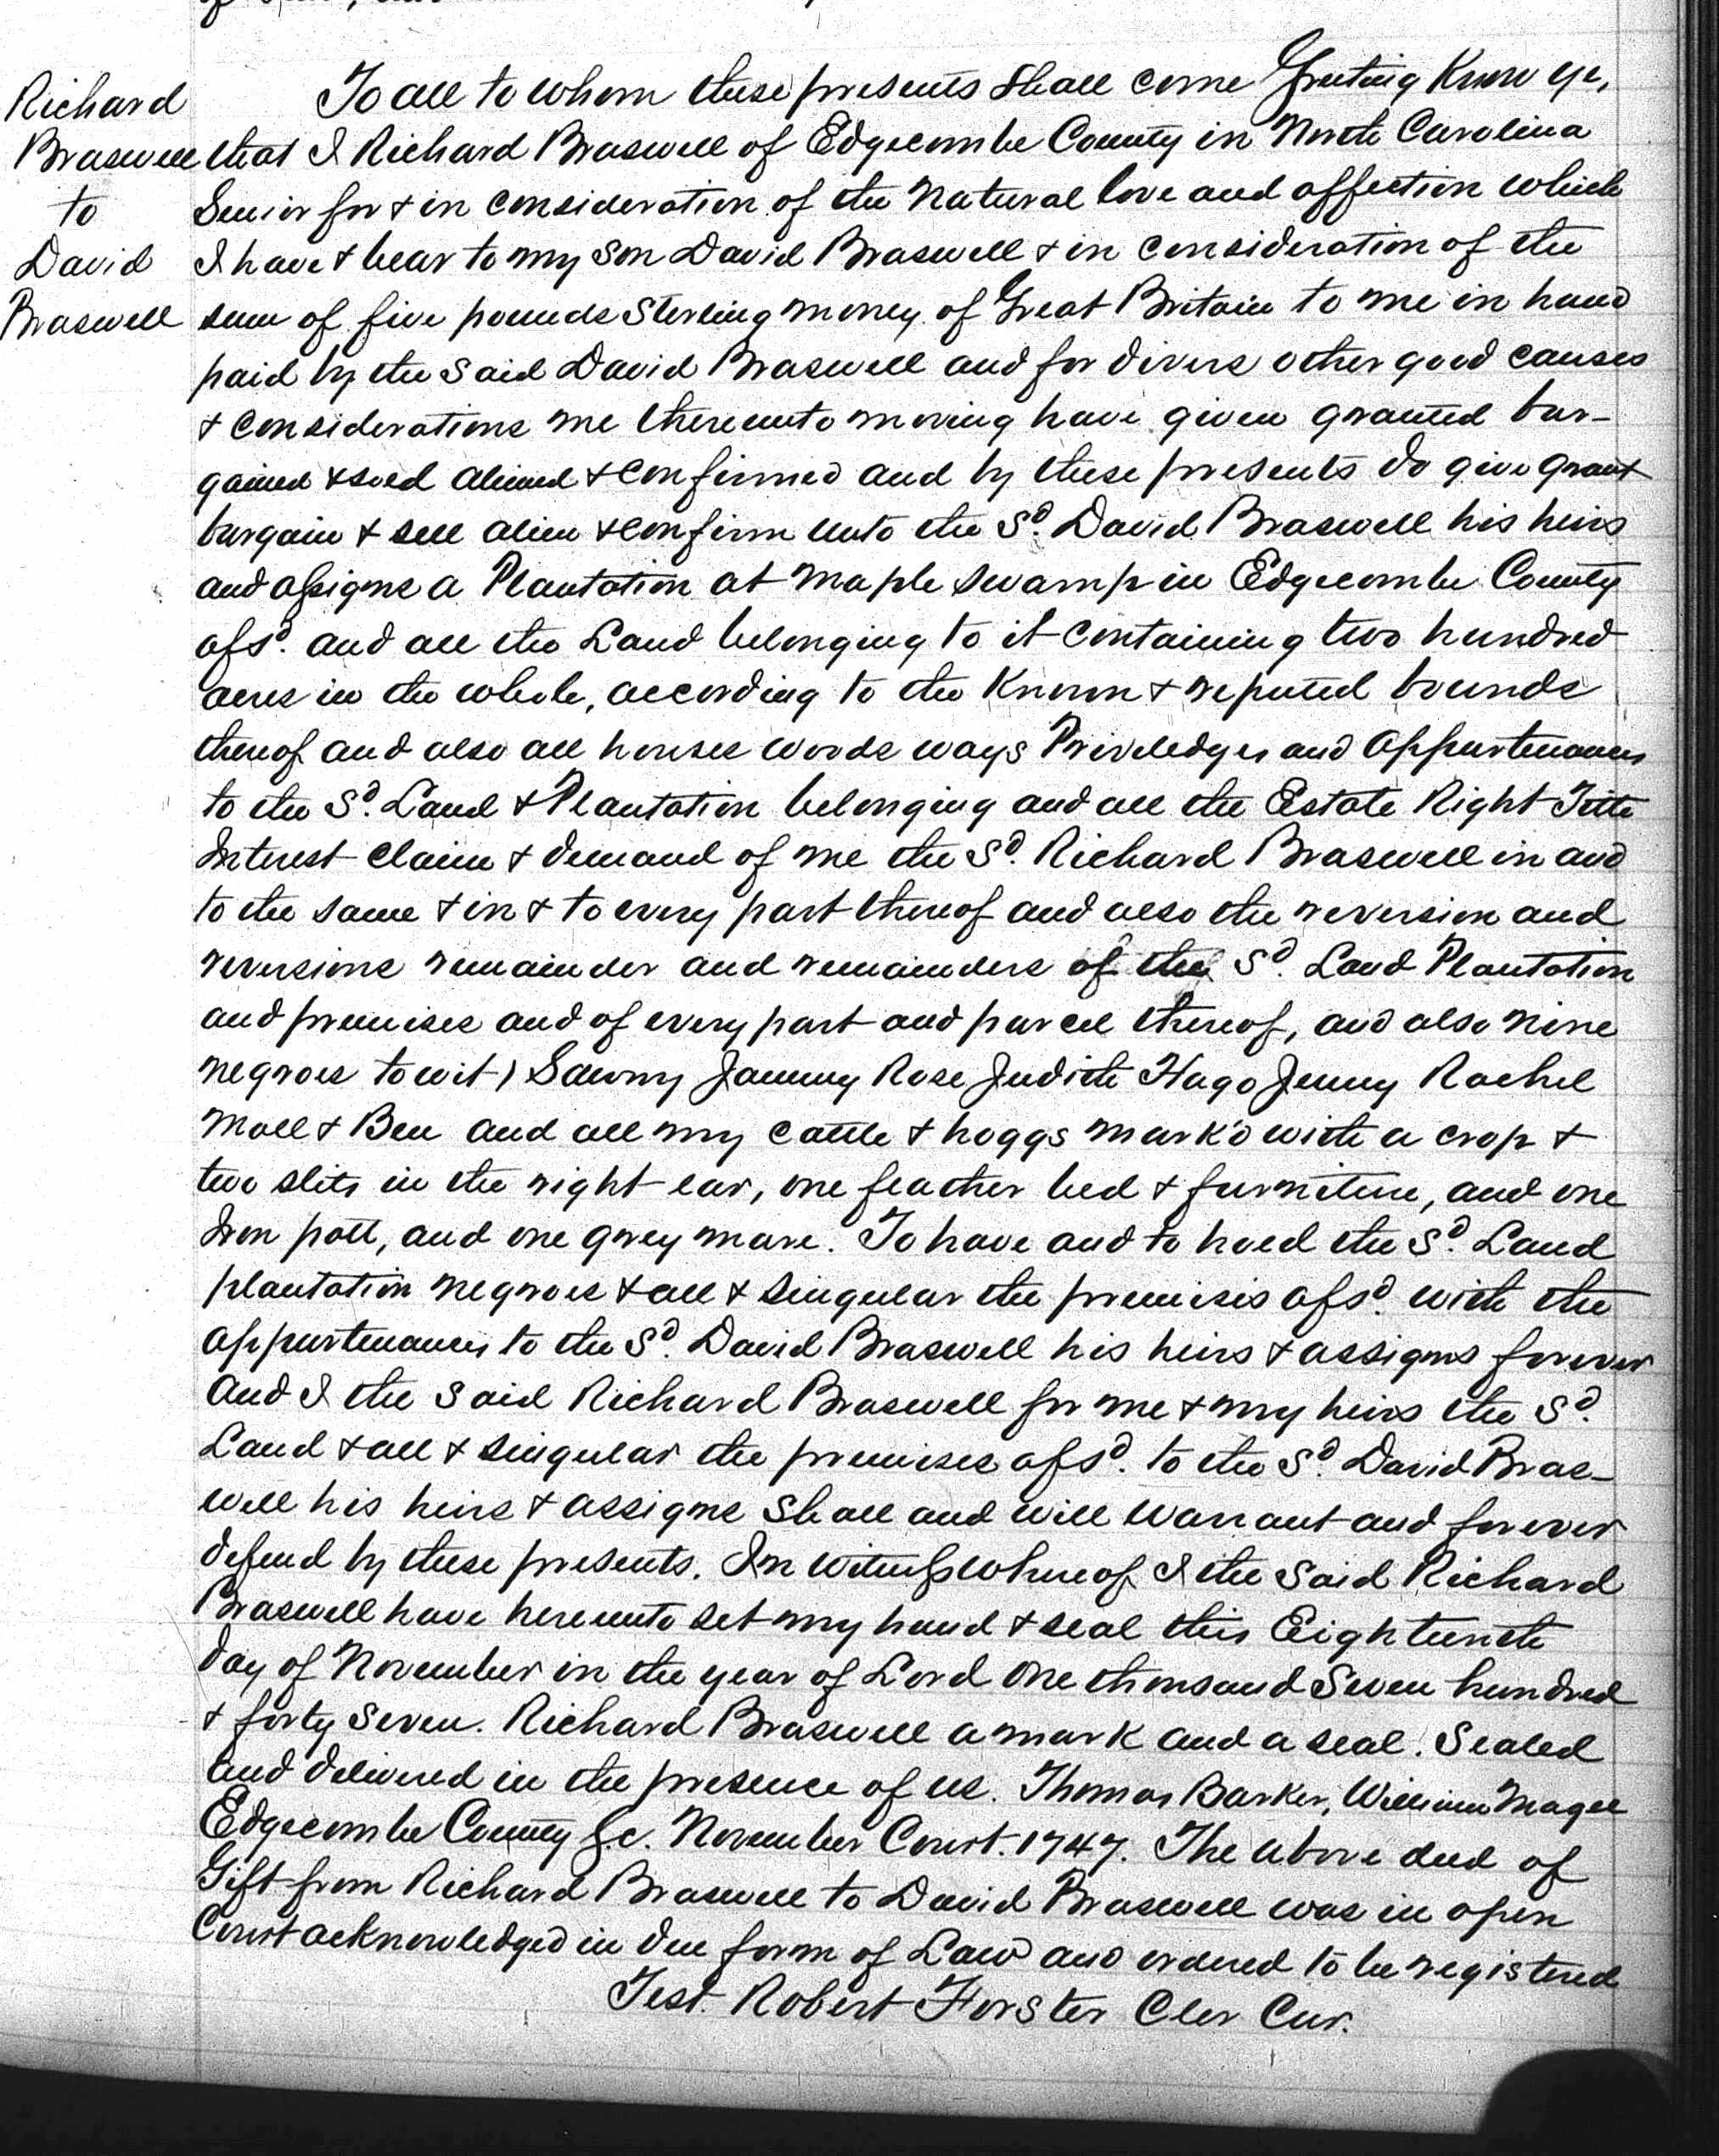 Richard
Braswell
to
David
Braswell
To all to whom these presents shall come Greeting Know ye,
that I Richard Braswell of Edgecombe County in North Carolina
Senior for & in consideration of the Natural love and affection which
I have & bear to my son David Braswell & in consideration of the
sum of five pounds Sterling money of Great Britain to me in hand
paid by the said David Braswell and for divers other good causes
& considerations me thereunto moving have given granted bar-
gained & sold aliened & confirmed and by these presents do give grant
bargain & sell alien & confirm unto the Sd. David Braswell his heirs
and assigns a Plantation at Maple Swamp in Edgecombe County
afsd. and all the Land belonging to it containing two hundred
acres in the whole, according to the Known & reputed bounds
thereof and also all houses woods ways Priviledges and Appurtenances
to the Sd. Land & Plantation belonging and all the Estate Right Title
Interest claim & demand of me the Sd. Richard Braswell in and
to the same & in & to every part thereof and also the reversion and
reversions remainder and remainders of the Sd. Land Plantation
and premises and of every part and parcel thereof, and also nine
negroes towit) Sawny Jammy Rose Judith Hago Jenny Rachel
Moll & Ben and all my cattle & hoggs mark'd with a crop &
two slits in the right ear, one feather bed & furniture, and one
Iron pott, and one grey mare. To have and to hold the Sd. Land
plantation negroes & all & singular the premises afsd. with the
appurtenances to the Sd. David Braswell his heirs & assigns forever
And I the said Richard Braswell for me & my heirs the Sd.
Land & all & singular the premises afsd. to the Sd. David Bras-
well his heirs & assigns shall and will warrant and forever
defend by these presents. In witness whereof I the said Richard
Braswell have hereunto set my hand & seal this Eighteenth
day of November in the year of Lord One thousand Seven hundred
& forty seven. Richard Braswell a mark and a seal. Sealed
and delivered in the presence of us. Thomas Barker, William Magee
Edgecombe County Sc. November Court. 1747. The above deed of
Gift from Richard Braswell to David Braswell was in open
Court acknowledged in due form of Law and ordered to be registered
Test. Robert Forster Cler Cur.